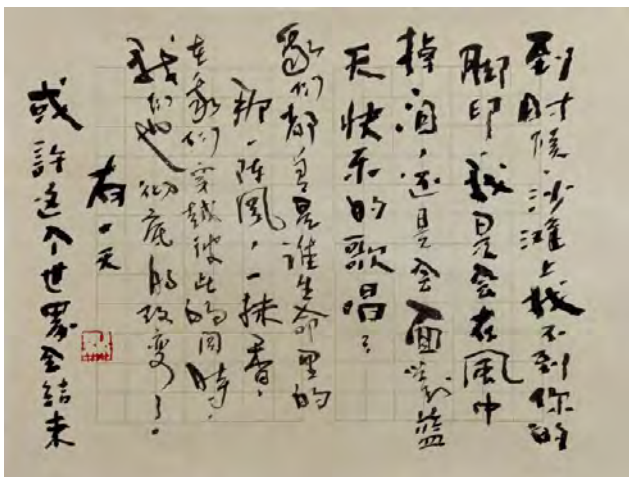 到时候，沙滩上找不到你的
脚印，我是会在风中
掉泪，还是会面对蓝
天快乐的歌唱？
我们都是谁生命里的
那一阵風，一抹香，
在我们穿越彼此的同時，
我们也彻底的改变了。
有一天
或許这个世界会结束